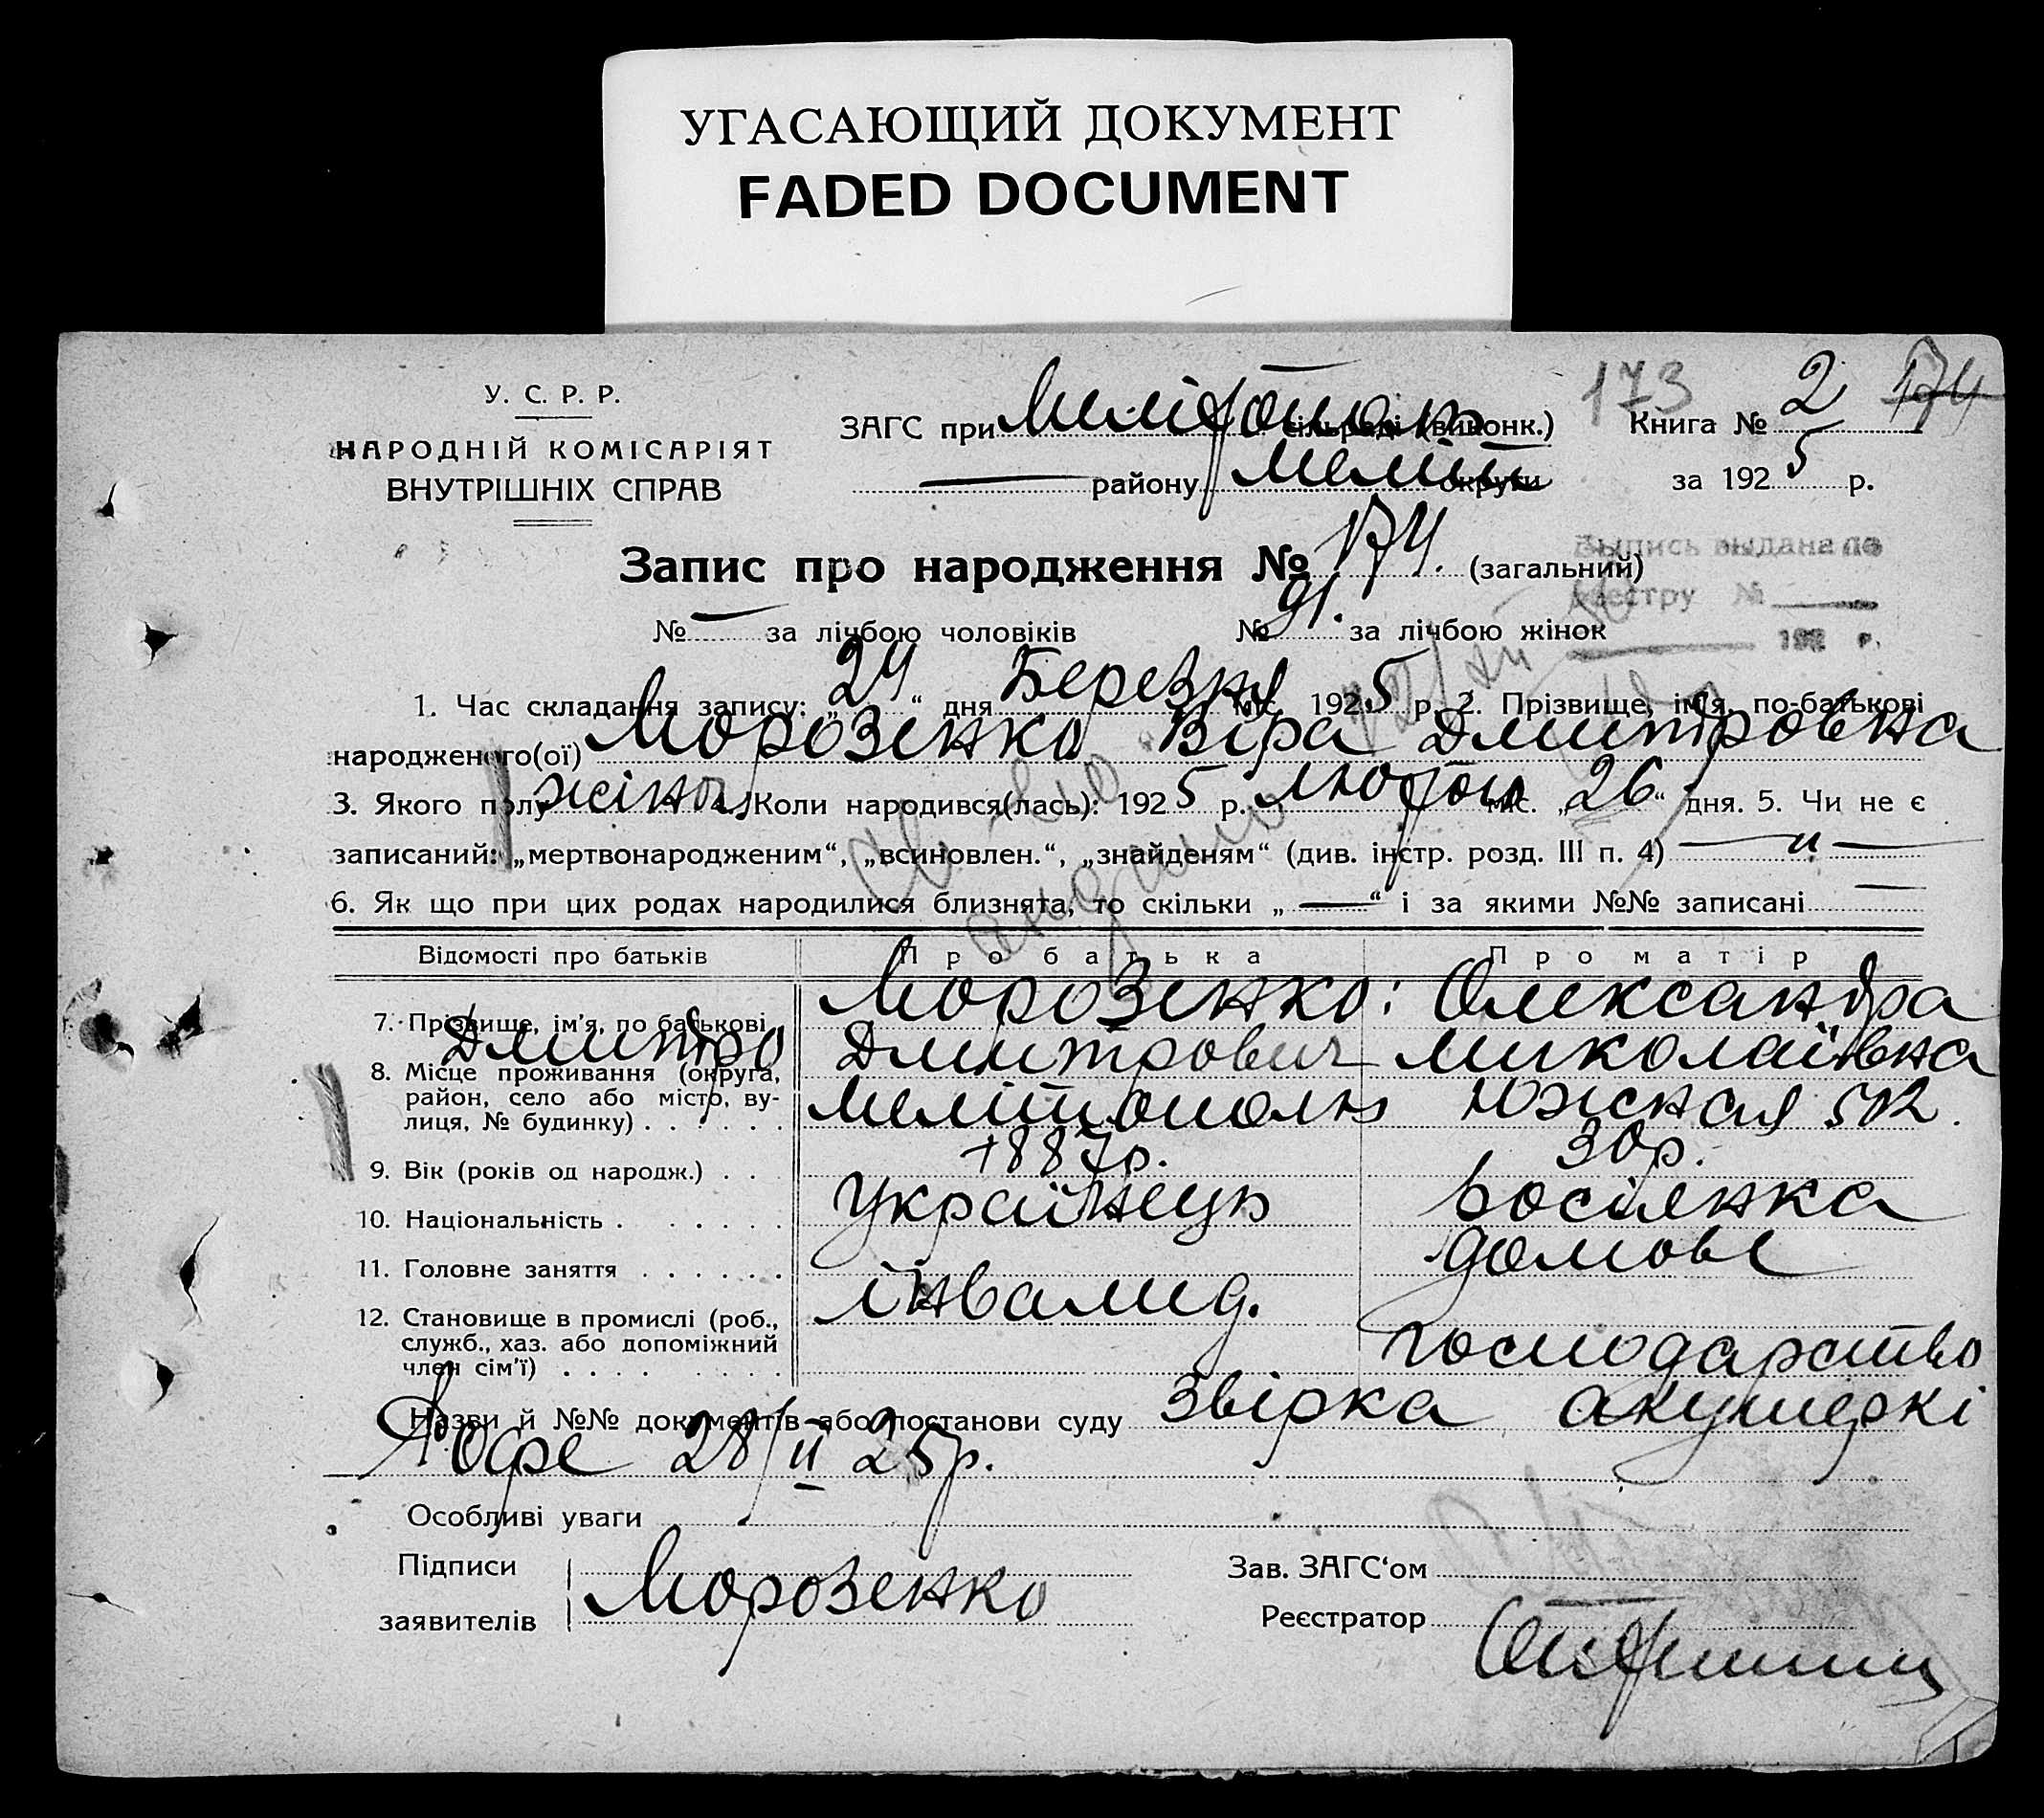 УГАСАЮЩИЙ ДОКУМЕНТ
FADED DOCUMENT
У. С. Р. Р.
НАРОДНІЙ КОМІСАРІЯТ
ВНУТРІШНІХ СПРАВ
ЗАГС при Мелітополь сільраді (виконк.)
— району Меліт округи
173
Книга № 2 174
за 1925 р.
Запис про народження № 174. (загальний)
Выпись выдана по
реестру № —
192 г.
№ — за лічбою чоловіків № 91. за лічбою жінок
1. Час складання запису: „24“ дня Березня міс. 1925 р. 2. Прізвище, ім'я, по-батькові
народженого(ої) Морозенко Віра Дмитровна
3. Якого полу жіноч. 4. Коли народився(лась): 1925 р. лютого міс. „26“ дня. 5. Чи не є
записаний: „мертвонародженим“, „всиновлен.“, „знайденям“ (див. інстр. розд. III п. 4) — „ —
6. Як що при цих родах народилися близнята, то скільки „ — “ і за якими №№ записані —
Відомості про батьків Про батька Про матір
7. Прізвище, ім'я, по батькові Морозенко: Олександра
Дмитро Дмитрович Миколаївна
8. Місце проживання (округа, район, село або місто, ву-
лиця, № будинку) Мелітополь Южная 52.
9. Вік (років од народж.) 1887р. 30р.
10. Національність Українець Росіянка
11. Головне заняття домове
12. Становище в промислі (роб., інвалид.
служб., хаз. або допоміжний господарство
член сім'ї)
Назви й №№ документів або постанови суду Звірка акушеркі
28/II 25р.
Особливі уваги
Підписи
заявителів Морозенко
Зав. ЗАГС'ом
Реєстратор